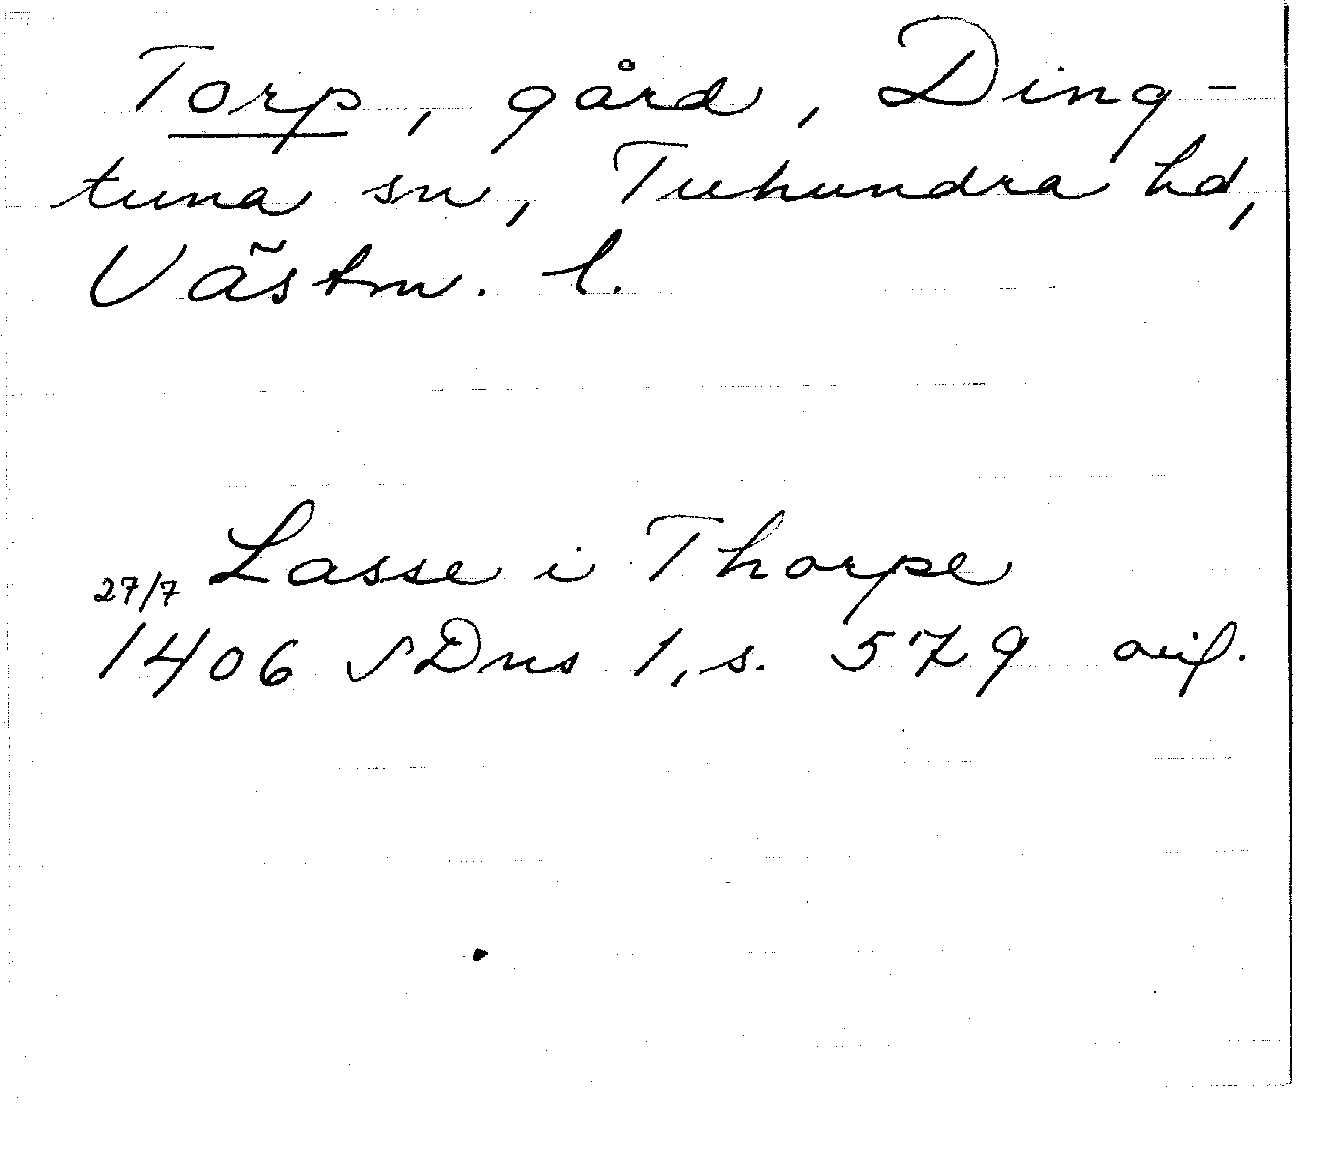 Torp, gård, Ding-
tuna sn, Tuhundra hd,
Västm. l.
Lasse i Thorpe
27/7
1406 SDns 1, s. 579